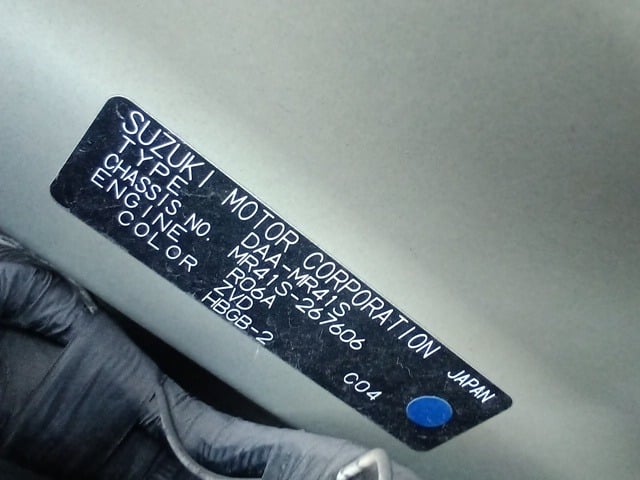 SUZUKI MOTOR CORPORATION JAPAN
TYPE DAA-MR41S
CHASSIS NO. MR41S-267606
ENGINE R06A
COLOR ZVD
HBGB-2 C04